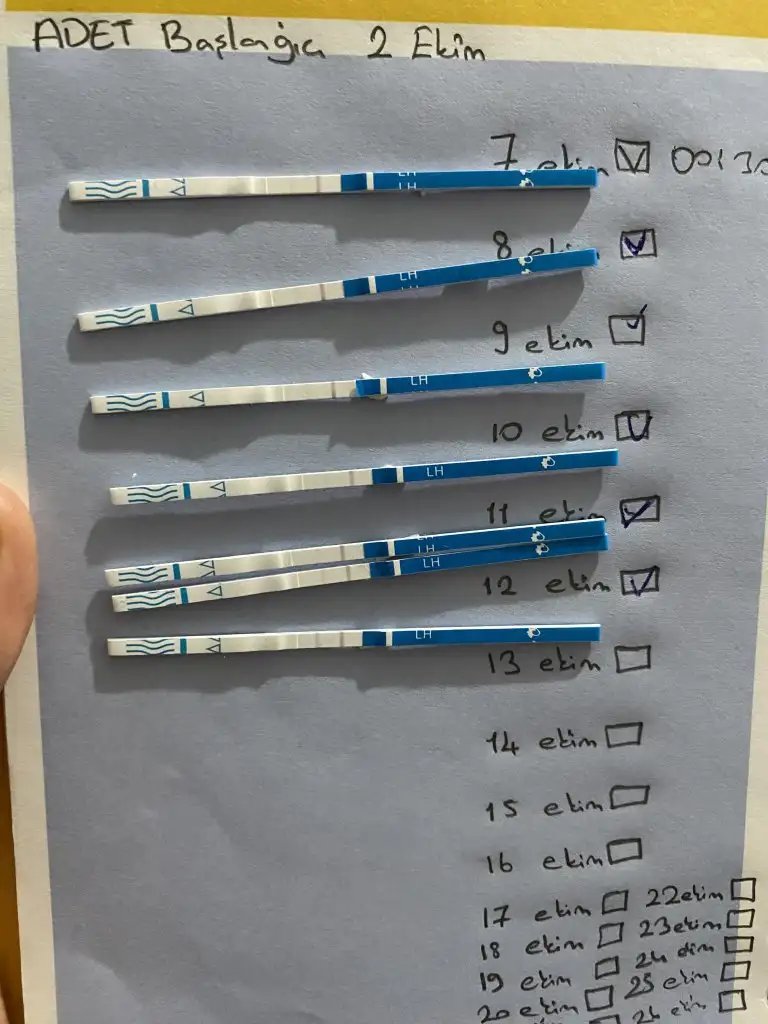 ADET Başlangıcı 2 Ekim
7 ekim
LH
LH
8 ekim
LH
9 ekim
LH
10 ekim
LH
11 ekim
LH
LH
12 ekim
LH
13 ekim
14 ekim
15 ekim
16 ekim
17 ekim 22 ekim
18 ekim 23 ekim
19 ekim 24 ekim
20 ekim 25 ekim